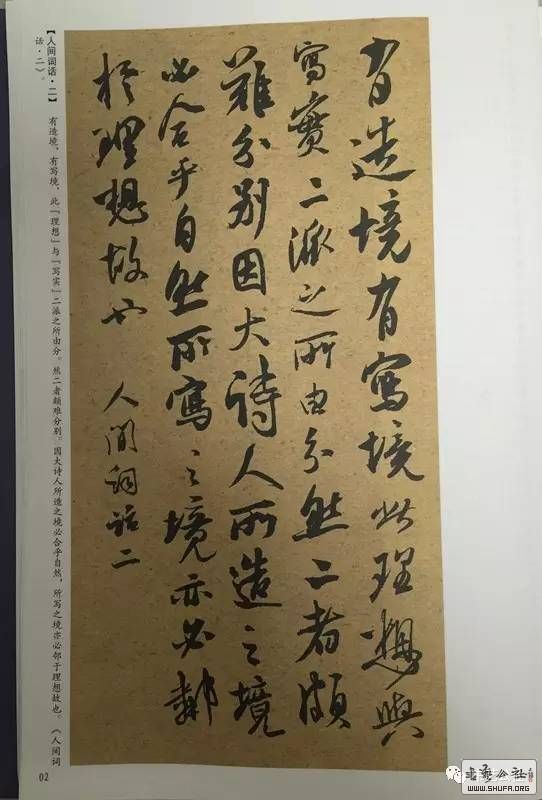 有造境有寫境此理想與
寫實二派之所由分然二者頗
難分别因大诗人所造之境
必合乎自然所寫之境亦必鄰
於理想故也 人间詞話二
【人间词话·二】 有造境，有写境，此「理想」与「写实」二派之所由分。然二者颇难分别。因大诗人所造之境必合乎自然，所写之境亦必邻于理想故也。《人间词
话·二》。
02
WWW.SHUFA.ORG